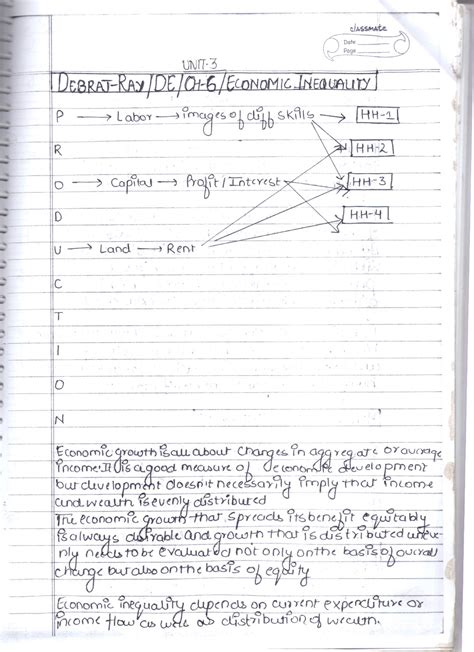 classmate
Date
Page
UNIT-3
DEBRAT-RAY/DE/CH-6/ECONOMIC INEQUALITY
P → Labor → images of diff skills → HH-1
R HH-2
O → Capital → Profit/Interest HH-3
D HH-4
U → Land → Rent
C
T
I
O
N
Economic growth is all about changes in aggregate or average
income. It is a good measure of economic development
but development doesn't necessarily imply that income
and wealth is evenly distributed
The economic growth that spreads its benefit equitably
is always desirable and growth that is distributed uneve-
nly needs to be evaluated not only on the basis of overall
change but also on the basis of equity
Economic inequality depends on current expenditure or
income flow as well as distribution of wealth.